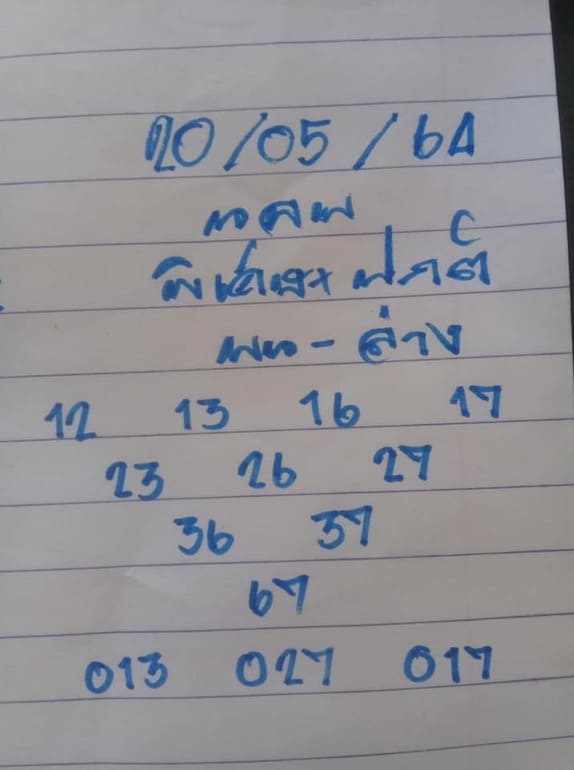 20/05/64
พิเศษ+ปกติ
บน - ล่าง
12 13 16 17
23 26 27
36 37
67
013 027 017